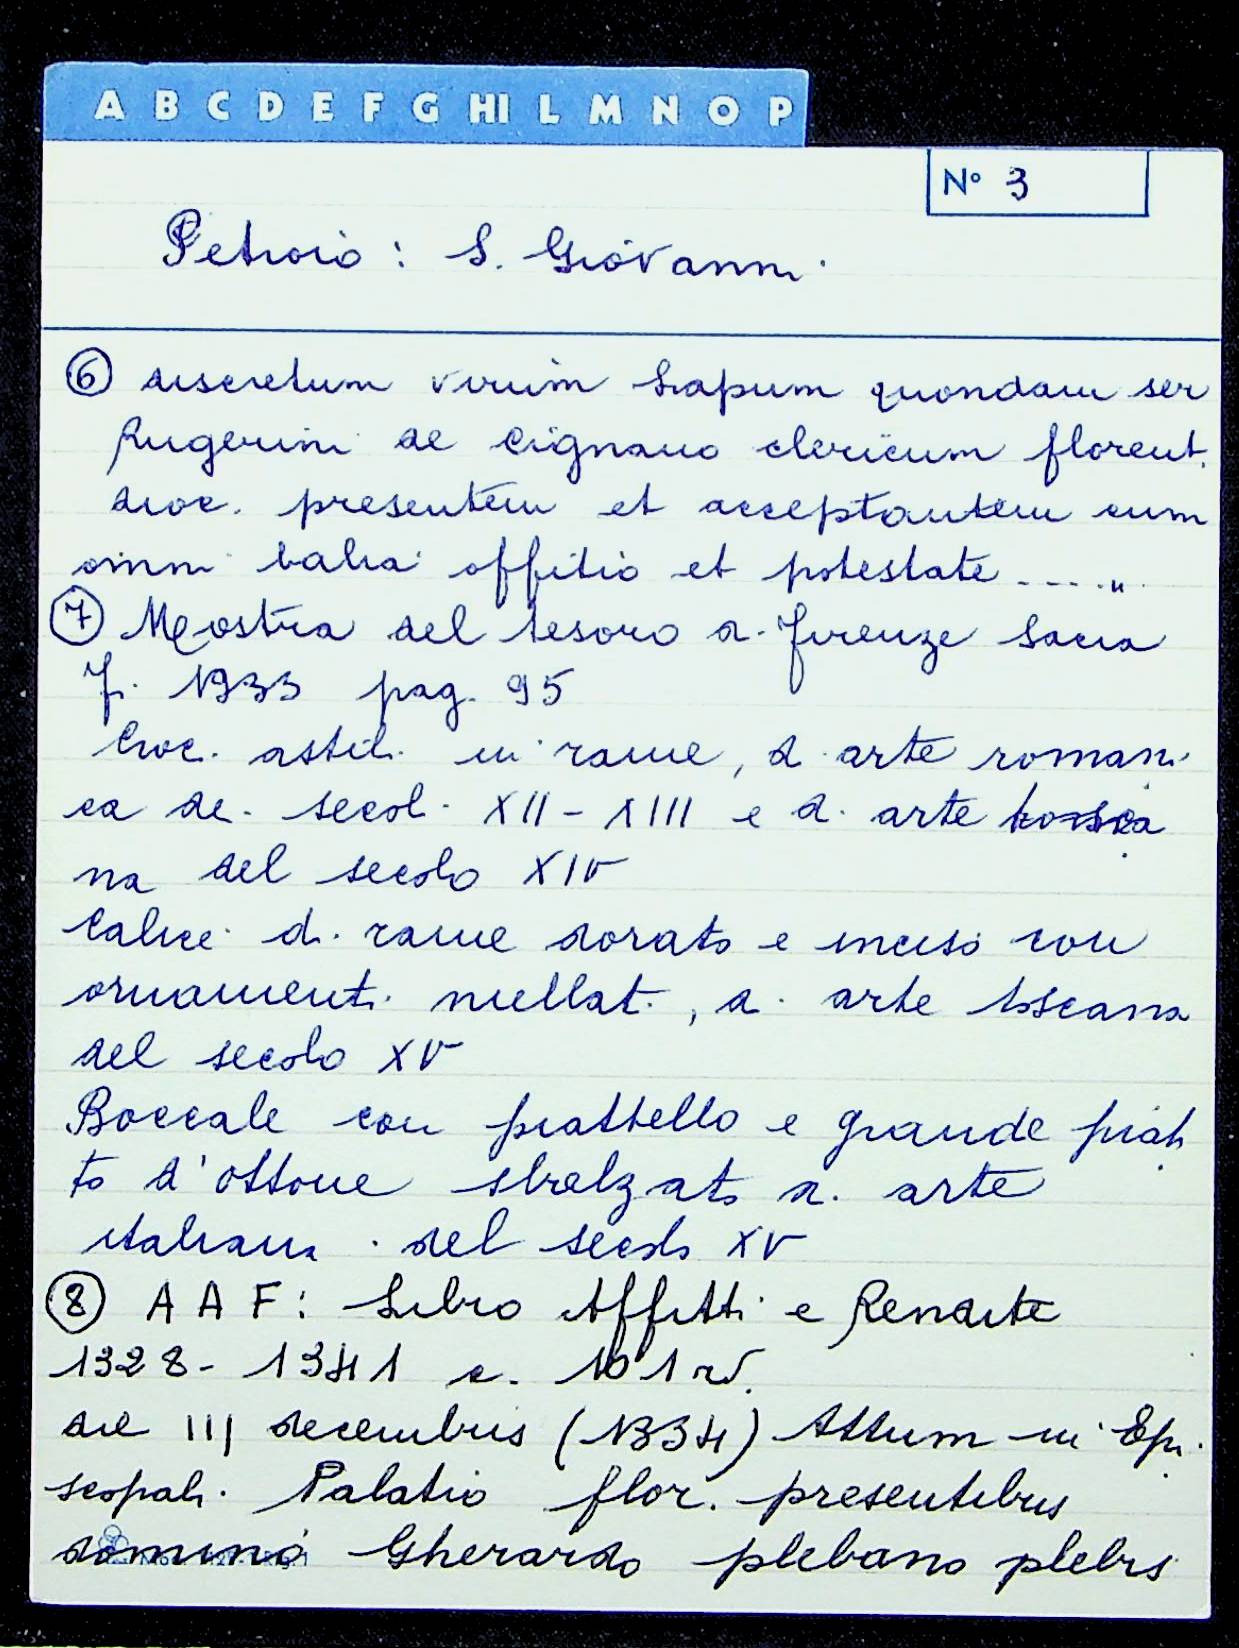 A B C D E F G HI L M N O P
N° 3
Petroio: S. Giovanni
⑥ discretum virum Lapum quondam ser
Rugerini de Cignano clericum florent.
dioc. presentem et acceptantem cum
omni balia offitio et potestate .... "
⑦ Mostra del tesoro di Firenze Sacra
F. 1933 pag. 95
Croc. astil. in rame, di arte romani
ca dei secoli XII-XIII e di arte tosca
na del secolo XIV
Calice di rame dorato e inciso con
ornamenti niellati, di arte toscana
del secolo XV
Boccale con piattello e grande piat
to d'ottone sbalzato di arte
italiana del secolo XV
⑧ A A F: Libro Affitti e Rendite
1328-1341 c. 101 rv.
die III decembris (1334) Attum in Epi
scopali Palatio flor. presentibus
domino Gherardo plebano plebis